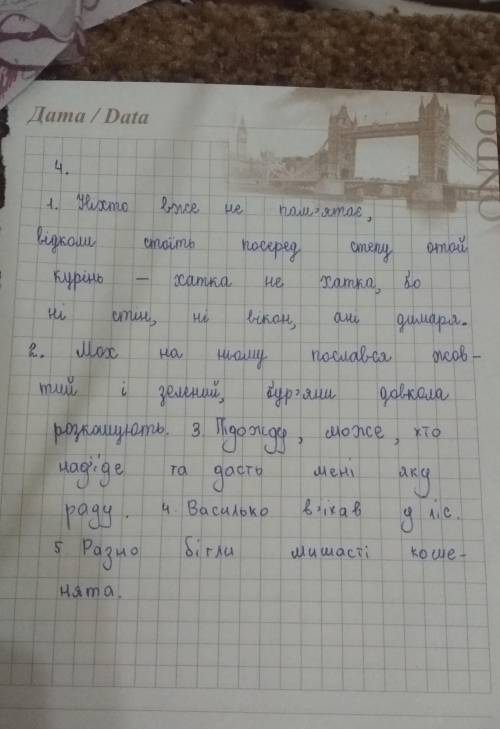 Дата / Data
ONDON
4.
1. Ніхто вже не пам'ятає,
відколи стоїть посеред степу отой
курінь – хатка не хатка, бо
ні стін, ні вікон, ані димаря.
2. Мох на ньому послався жов-
тий і зелений, бур'яни довкола
розкошують. 3. Підожду, може, хто
над'їде та дасть мені яку
раду. 4. Василько в'їхав у ліс.
5 Разно бігли мишасті коше-
нята.